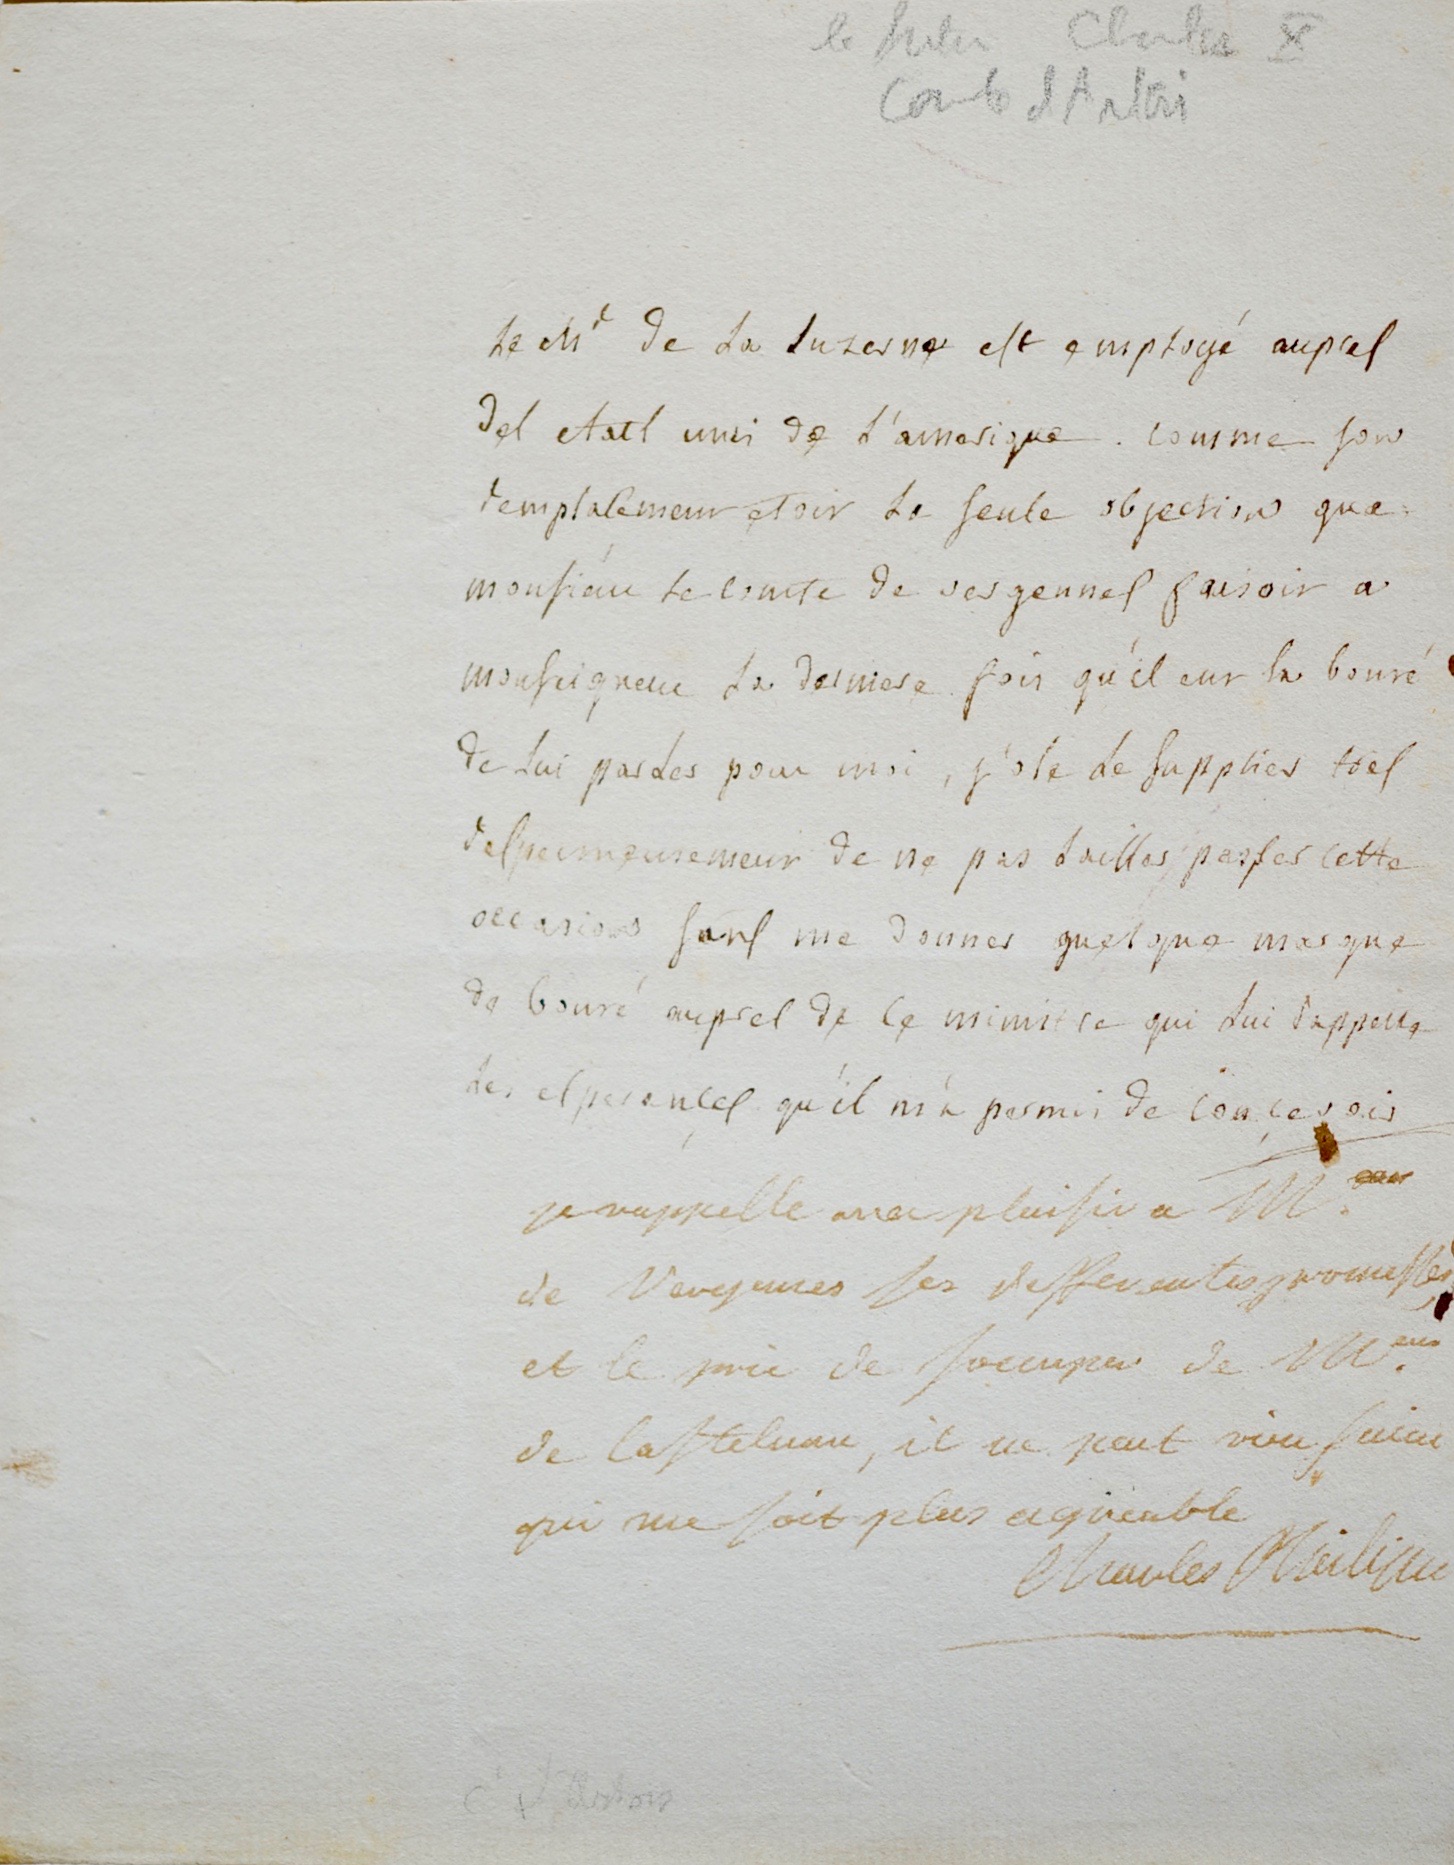 le futur Charles X
Comte d'Artois
Le Mis de La Luzerne est employé aupres
des etats unis de L'amerique. comme son
remplacement etoit La seule objection que
monsieur Le comte de vergennes faisoit a
monseigneur La derniere fois qu'il eut la bonté
de Lui parler pour moi, j'ose Le supplier tres
de ne pas Laisser passer cette
occasion sans me donner quelque marque
de bonté aupres de ce ministre qui Lui rappelle
Les esperances qu'il m'a permis de concevoir
je rappelle avec plaisir a M.
de Vergennes ses differentes promesses
et le prie de s'occuper de M.
de Castelnau, il ne peut rien faire
qui me soit plus agréable
Charles Philippe
Cte d'Artois